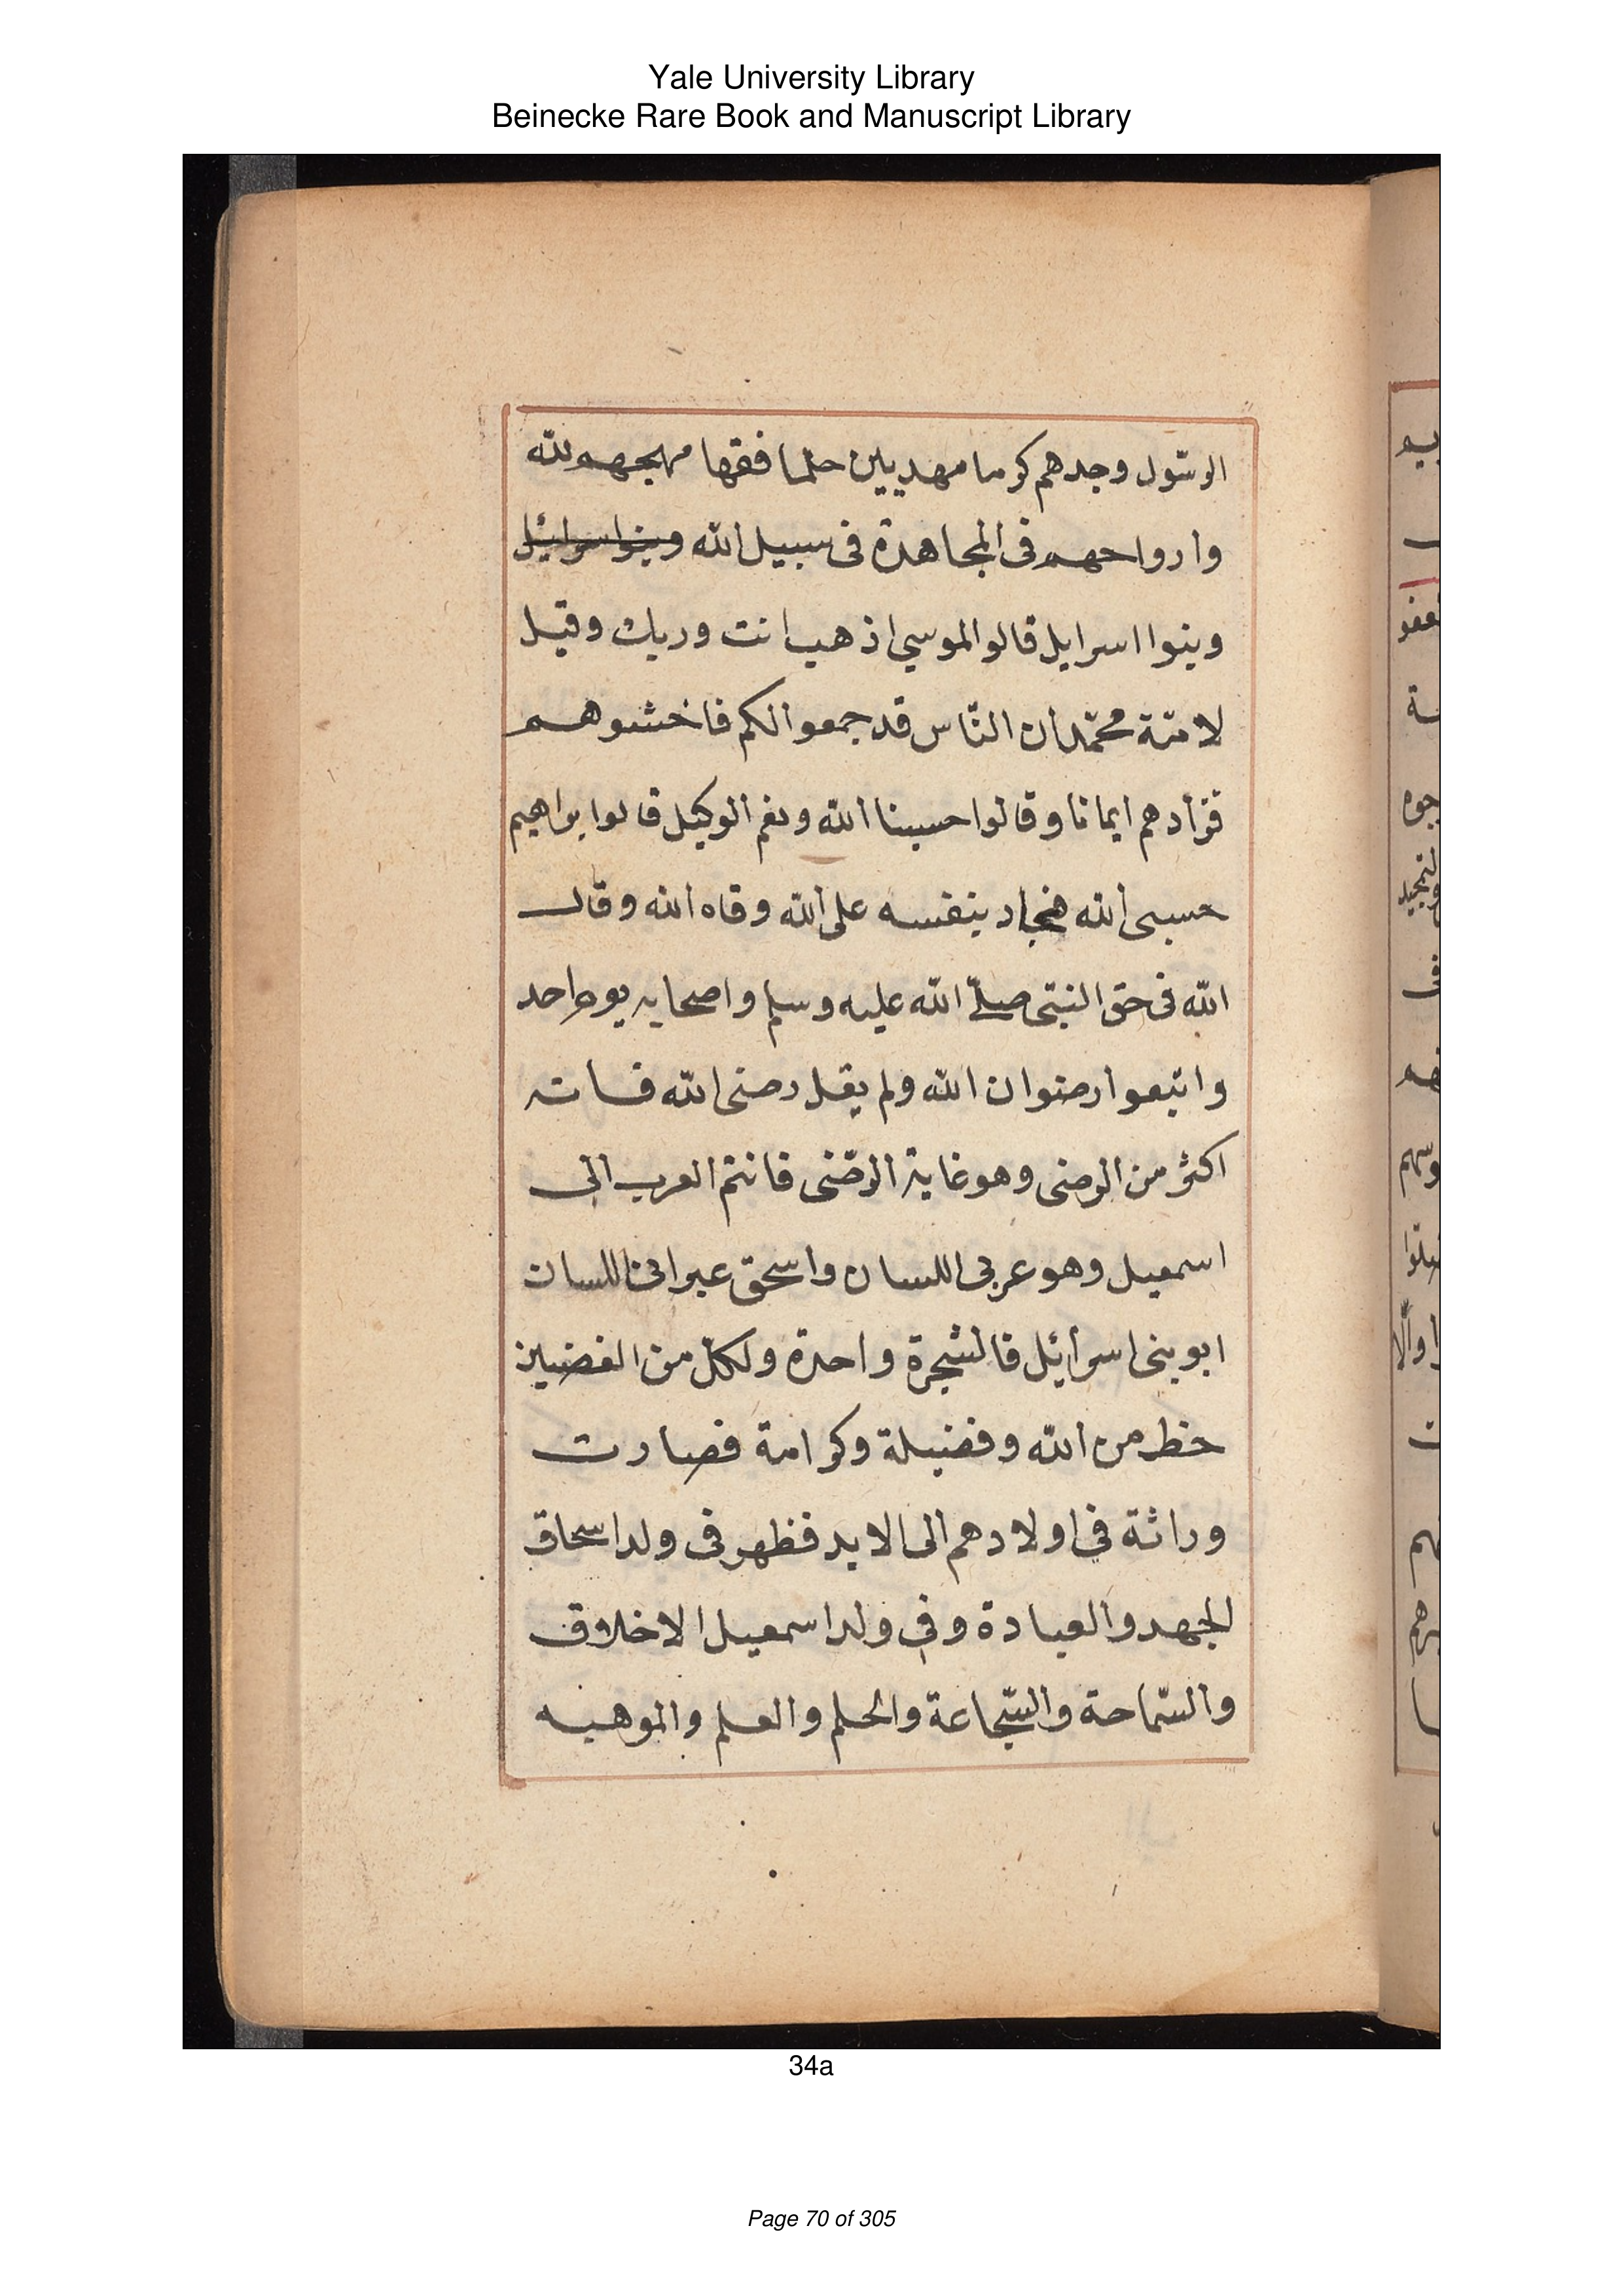 Yale University Library
Beinecke Rare Book and Manuscript Library
الرسّول وجدهم كرما مهديين حلما فقها مهجهم لله
وارواحهم فى المجاهدة فى سبيل الله وبنوا اسرائيل
وبنوا اسرايل قالوا لموسي اذهب انت وربك وقيل
لامّة محمّد ان النّاس قد جمعوا لكم فاخشوهم
فزادهم ايمانا وقالوا حسبنا الله ونعم الوكيل قالوا براهيم
حسبى الله فجاد بنفسه على الله وقاه الله وقال
الله فى حق النبّى صلّے الله عليه وسلم واصحابه يوم احد
واتبعوا رضوان الله ولم يقل رضى الله فانه
اكثر من الرضى وهو غاية الرضّى فانتم العرب الى
اسمعيل وهو عربى اللسان واسحق عبرانى اللسان
ابو بنى اسرائيل فالشجرة واحدة ولكل من الغصنين
حظ من الله وفضيلة وكرامة فصارت
وراثة في اولادهم الى الابد فظهر فى ولد اسحاق
الجهد والعبادة وفي ولد اسمعيل الاخلاق
والسّماحة والشّجاعة والحلم والعلم والموهبه
34a
Page 70 of 305